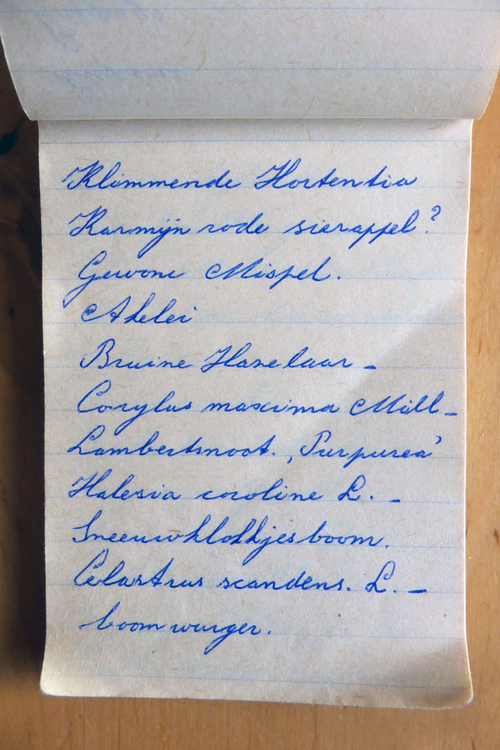 Klimmende Hortentia
Karmijn rode sierappel?
Gewone Mispel.
Akelei
Bruine Hazelaar -
Corylus maxima Mill -
Lambertsnoot. ,Purpurea'
Halesia caroline L. -
Sneeuwklokjesboom.
Celastrus scandens. L. -
boomwurger.